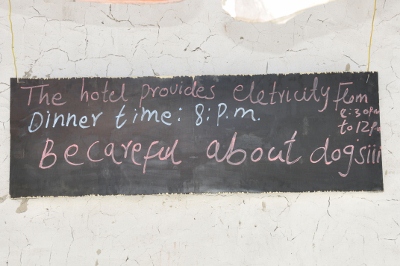 The hotel provides eletricity From
8:30pm
to 12pm
Dinner time: 8:P.m.
Becareful about dogsiii